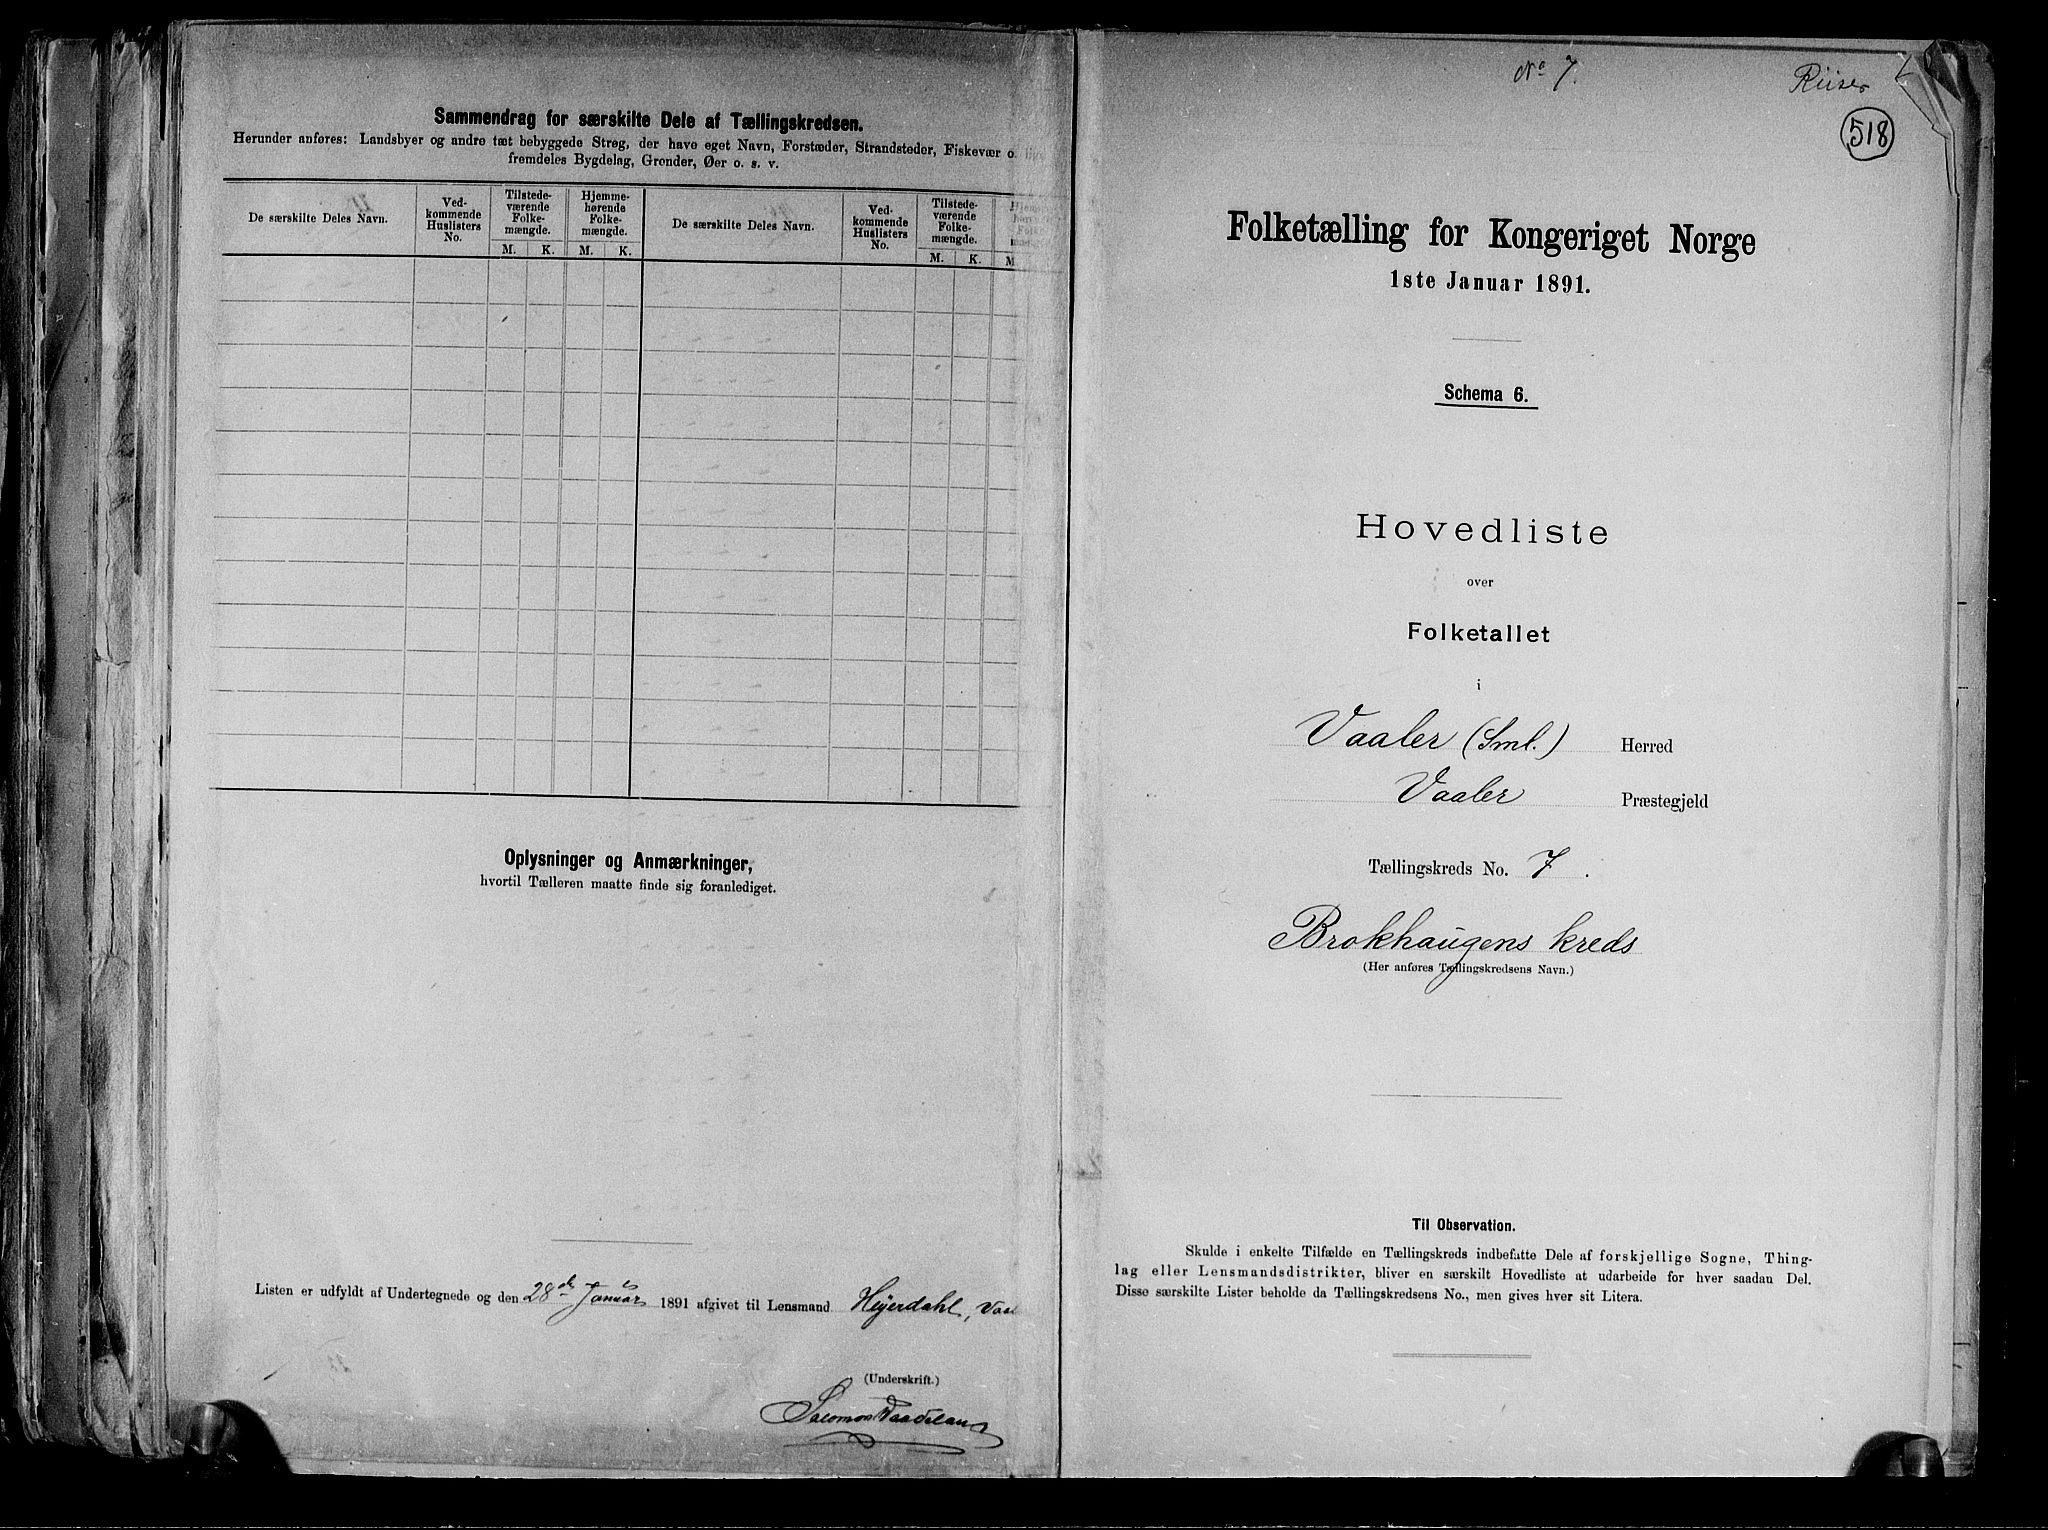 Sammendrag for særskilte Dele af Tællingskredsen.
Herunder anføres: Landsbyer og andre tæt bebyggede Strøg, der have eget Navn, Forstæder, Strandsteder, Fiskevær o.
fremdeles Bygdelag, Grender, Øer o. s. v.
De særskilte Deles Navn.
Ved-
kommende
Huslisters
No.
Tilstede-
værende
Folke-
mængde.
M. K.
Hjemme-
hørende
Folke-
mængde.
M. K.
De særskilte Deles Navn.
Ved-
kommende
Huslisters
No.
Tilstede-
værende
Folke-
mængde.
M. K.
M
Oplysninger og Anmærkninger,
hvortil Tælleren maatte finde sig foranlediget.
Listen er udfyldt af Undertegnede og den 28de Januar 1891 afgivet til Lensmand Heyerdahl, Vaa
(Underskrift.)
Salomon
No 7.
518
Folketælling for Kongeriget Norge
1ste Januar 1891.
Schema 6.
Hovedliste
over
Folketallet
i
Vaaler (Sml.) Herred
Vaaler Præstegjeld
Tællingskreds No. 7.
Brokhaugens kreds
(Her anføres Tællingskredsens Navn.)
Til Observation.
Skulde i enkelte Tilfælde en Tællingskreds indbefatte Dele af forskjellige Sogne, Thing-
lag eller Lensmandsdistrikter, bliver en særskilt Hovedliste at udarbeide for hver saadan Del.
Disse særskilte Lister beholde da Tællingskredsens No., men gives hver sit Litera.